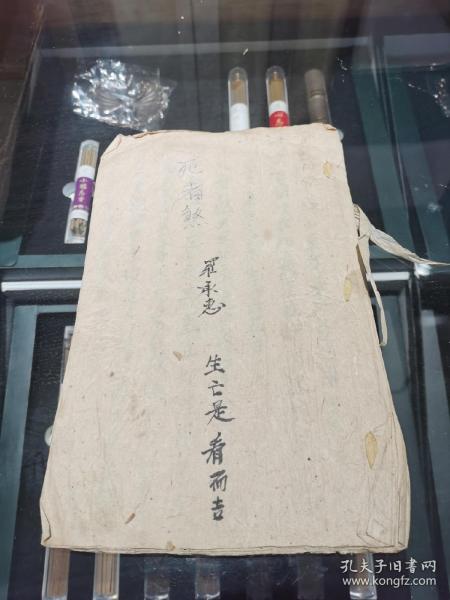 死者煞
罗承惠
生亡是看而吉
孔夫子旧书网
www.kongfz.com